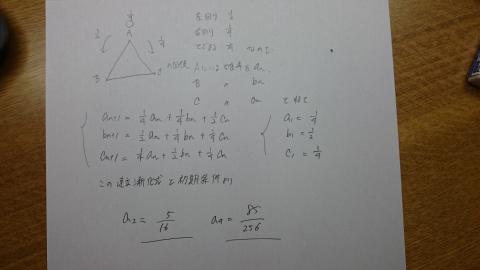 1/4
A
1/2
1/4
B
C
左回り 1/2
右回り 1/4
1/4 なので
n回後 Aにいる確率を an
B 〃 bn
C 〃 cn とおくと
an+1 = 1/4 an + 1/4 bn + 1/2 cn
bn+1 = 1/2 an + 1/4 bn + 1/4 cn
cn+1 = 1/4 an + 1/2 bn + 1/4 cn
a1 = 1/4
b1 = 1/2
c1 = 1/4
この連立漸化式と初期条件より
a2 = 5/16 a4 = 85/256